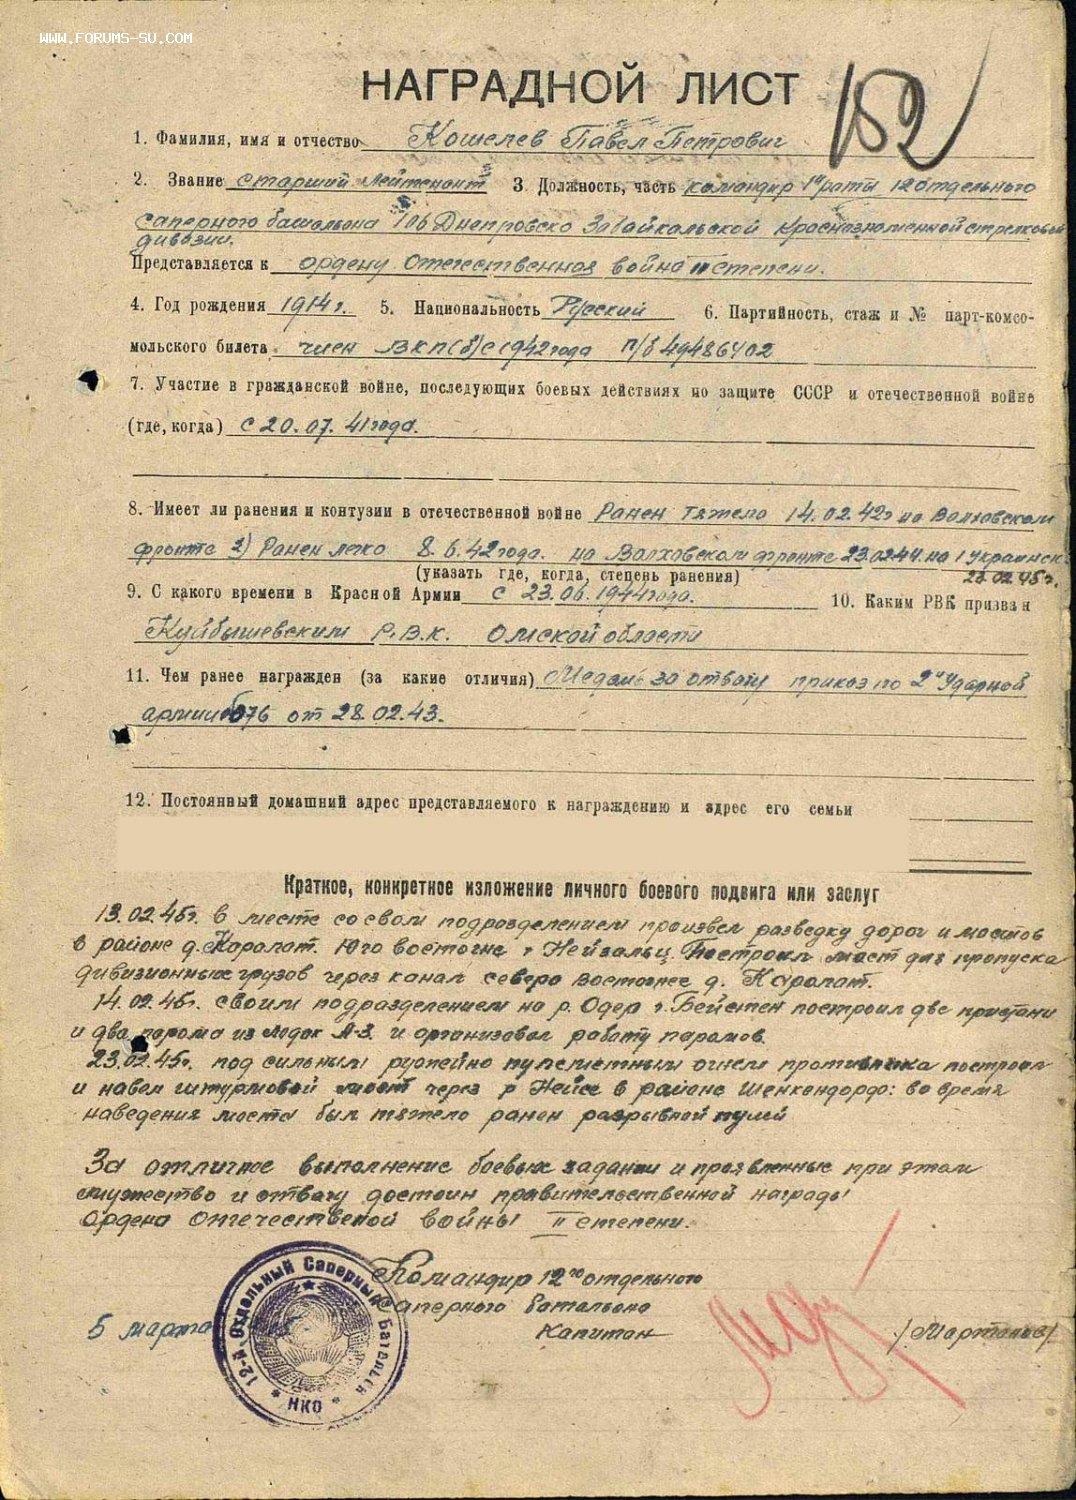 WWW.FORUMS-SU.COM
НАГРАДНОЙ ЛИСТ
152
1. Фамилия, имя и отчество Кошелев Павел Петрович
2. Звание старший лейтенант 3 Должность, часть командир 1й роты 12 отдельного
саперного батальона 106 Днепровско Забайкальской Краснознаменной стрелковой
дивизии.
Представляется к ордену Отечественная война II степени.
4. Год рождения 1914 г. 5. Национальность Русский 6. Партийность, стаж и № парт-комсо-
мольского билета член ВКП(б) с 1942 года п/б 49486402
7. Участие в гражданской войне, последующих боевых действиях по защите СССР и отечественной войне
(где, когда) с 20.07.41 года.
8. Имеет ли ранения и контузии в отечественной войне Ранен тяжело 14.02.42г на Волховском
фронте 2) Ранен легко 8.6.42 года. на Волховском фронте 23.02.44. на 1 Украинск.
(указать где, когда, степень ранения) 23.02.45г.
9. С какого времени в Красной Армии с 23.06.1941 года. 10. Каким РВК призван
Куйбышевским Р.В.К. Омской области
11. Чем ранее награжден (за какие отличия) Медаль за отвагу приказ по 2й Ударной
армии 076 от 28.02.43.
12. Постоянный домашний адрес представляемого к награждению и адрес его семьи
Краткое, конкретное изложение личного боевого подвига или заслуг
13.02.45г. в месте со своим подразделением произвел разведку дорог и мостов
в районе д. Каролат. Юго восточне г Нейзальц Построил мост для пропуска
дивизионных грузов через канал северо восточнее д. Каролат.
14.02.45г. своим подразделением на р. Одер г. Бейтен построил две пристани
и два парома из лодок А-3 и организовал работу паромов.
23.02.45г. под сильным ружейно пулеметным огнем противника построил
и навел штурмовой мост через р Нейсе в районе Шенкендорф: во время
наведения моста был тяжело ранен разрывной пулей
За отличное выполнение боевых задании и проявленные при этом
мужество и отвагу достоин правительственной награды
Ордена Отечественой войны II степени.
Командир 12го отдельного
Саперного батальона
5 марта Капитан /Мартынов/
12-й Отдельный Саперный Батальон * НКО *